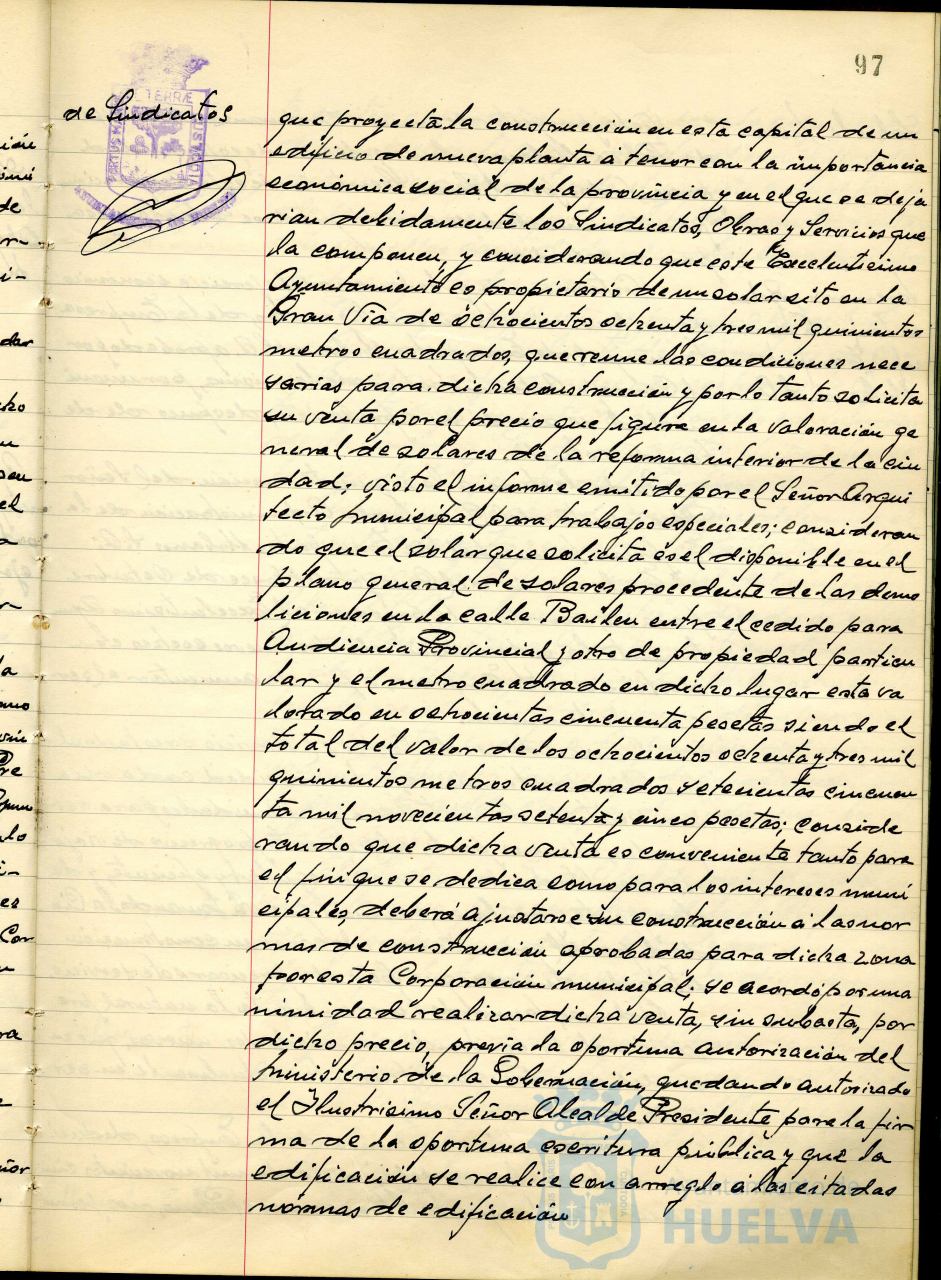 97
de Sindicatos
que proyecta la construcción en esta capital de un
edificio de nueva planta a tenor con la importancia
económica social de la provincia y en el que se deja
rian debidamente los Sindicatos, Obras y Servicios que
la componen, y considerando que este Excelentisimo
Ayuntamiento es propietario de un solar sito en la
Gran Vía de ochocientos ochenta y tres mil quinientos
metros cuadrados, que reune las condiciones nece
sarias para dicha construcción y por lo tanto solicita
su venta por el precio que figure en la valoración ge
neral de solares de la reforma interior de la ciu
dad; visto el informe emitido por el Señor Arqui
tecto municipal para trabajos especiales; consideran
do que el solar que solicita es el disponible en el
plano general de solares procedente de las demo
liciones en la calle Bailen entre el cedido para
Audiencia Provincial y otro de propiedad particu
lar y el metro cuadrado en dicho lugar esta va
lorado en ochocientas cincuenta pesetas siendo el
total del valor de los ochocientos ochenta y tres mil
quinientos metros cuadrados setecientas cincuen
ta mil novecientas setenta y cinco pesetas; conside
rando que dicha venta es conveniente tanto para
el fin que se dedica como para los intereses muni
cipales, deberá ajustarse su construcción á las nor
mas de construcción aprobadas para dicha zona
por esta Corporación municipal; se acordó por una
nimidad realizar dicha venta, sin subasta, por
dicho precio, previa la oportuna autorización del
Ministerio de la Gobernación, quedando autorizado
el Ilustrisimo Señor Alcalde Presidente para la fir
ma de la oportuna escritura pública y que la
edificación se realice con arreglo á las citadas
normas de edificación
HUELVA